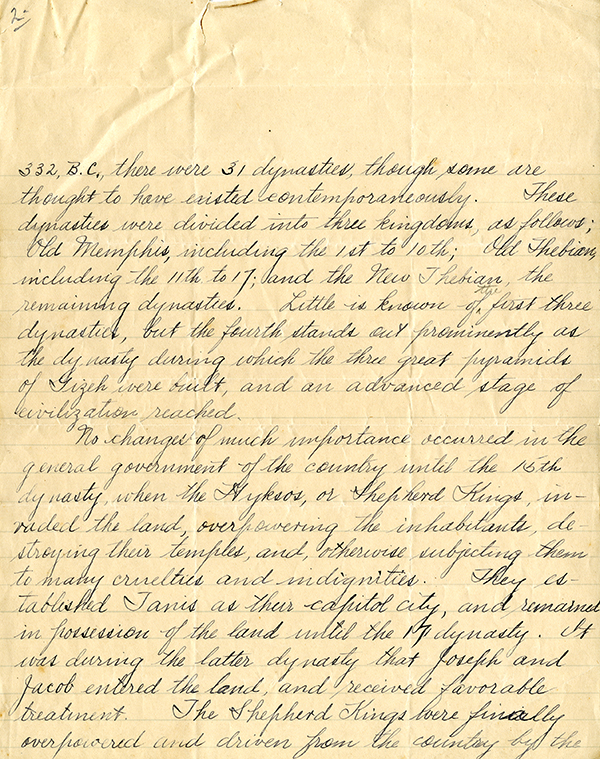 2-
332, B.C., there were 31 dynasties, though some are
thought to have existed contemporaneously. These
dynasties were divided into three kingdoms, as follows;
Old Memphis, including the 1st to 10th; Old Thebian,
including the 11th to 17; and the New Thebian, the
remaining dynasties. Little is known of the first three
dynasties, but the fourth stands out prominently as
the dynasty during which the three great pyramids
of Gizeh were built, and an advanced stage of
civilization reached.
No changes of much importance occurred in the
general government of the country until the 15th
dynasty, when the Hyksos, or Shepherd Kings, in-
vaded the land, overpowering the inhabitants, de-
stroying their temples, and, otherwise subjecting them
to many cruelties and indignities. They es-
tablished Tanis as their capitol city, and remained
in possession of the land until the 17 dynasty. It
was during the latter dynasty that Joseph and
Jacob entered the land, and received favorable
treatment. The Shepherd Kings were finally
overpowered and driven from the country by the